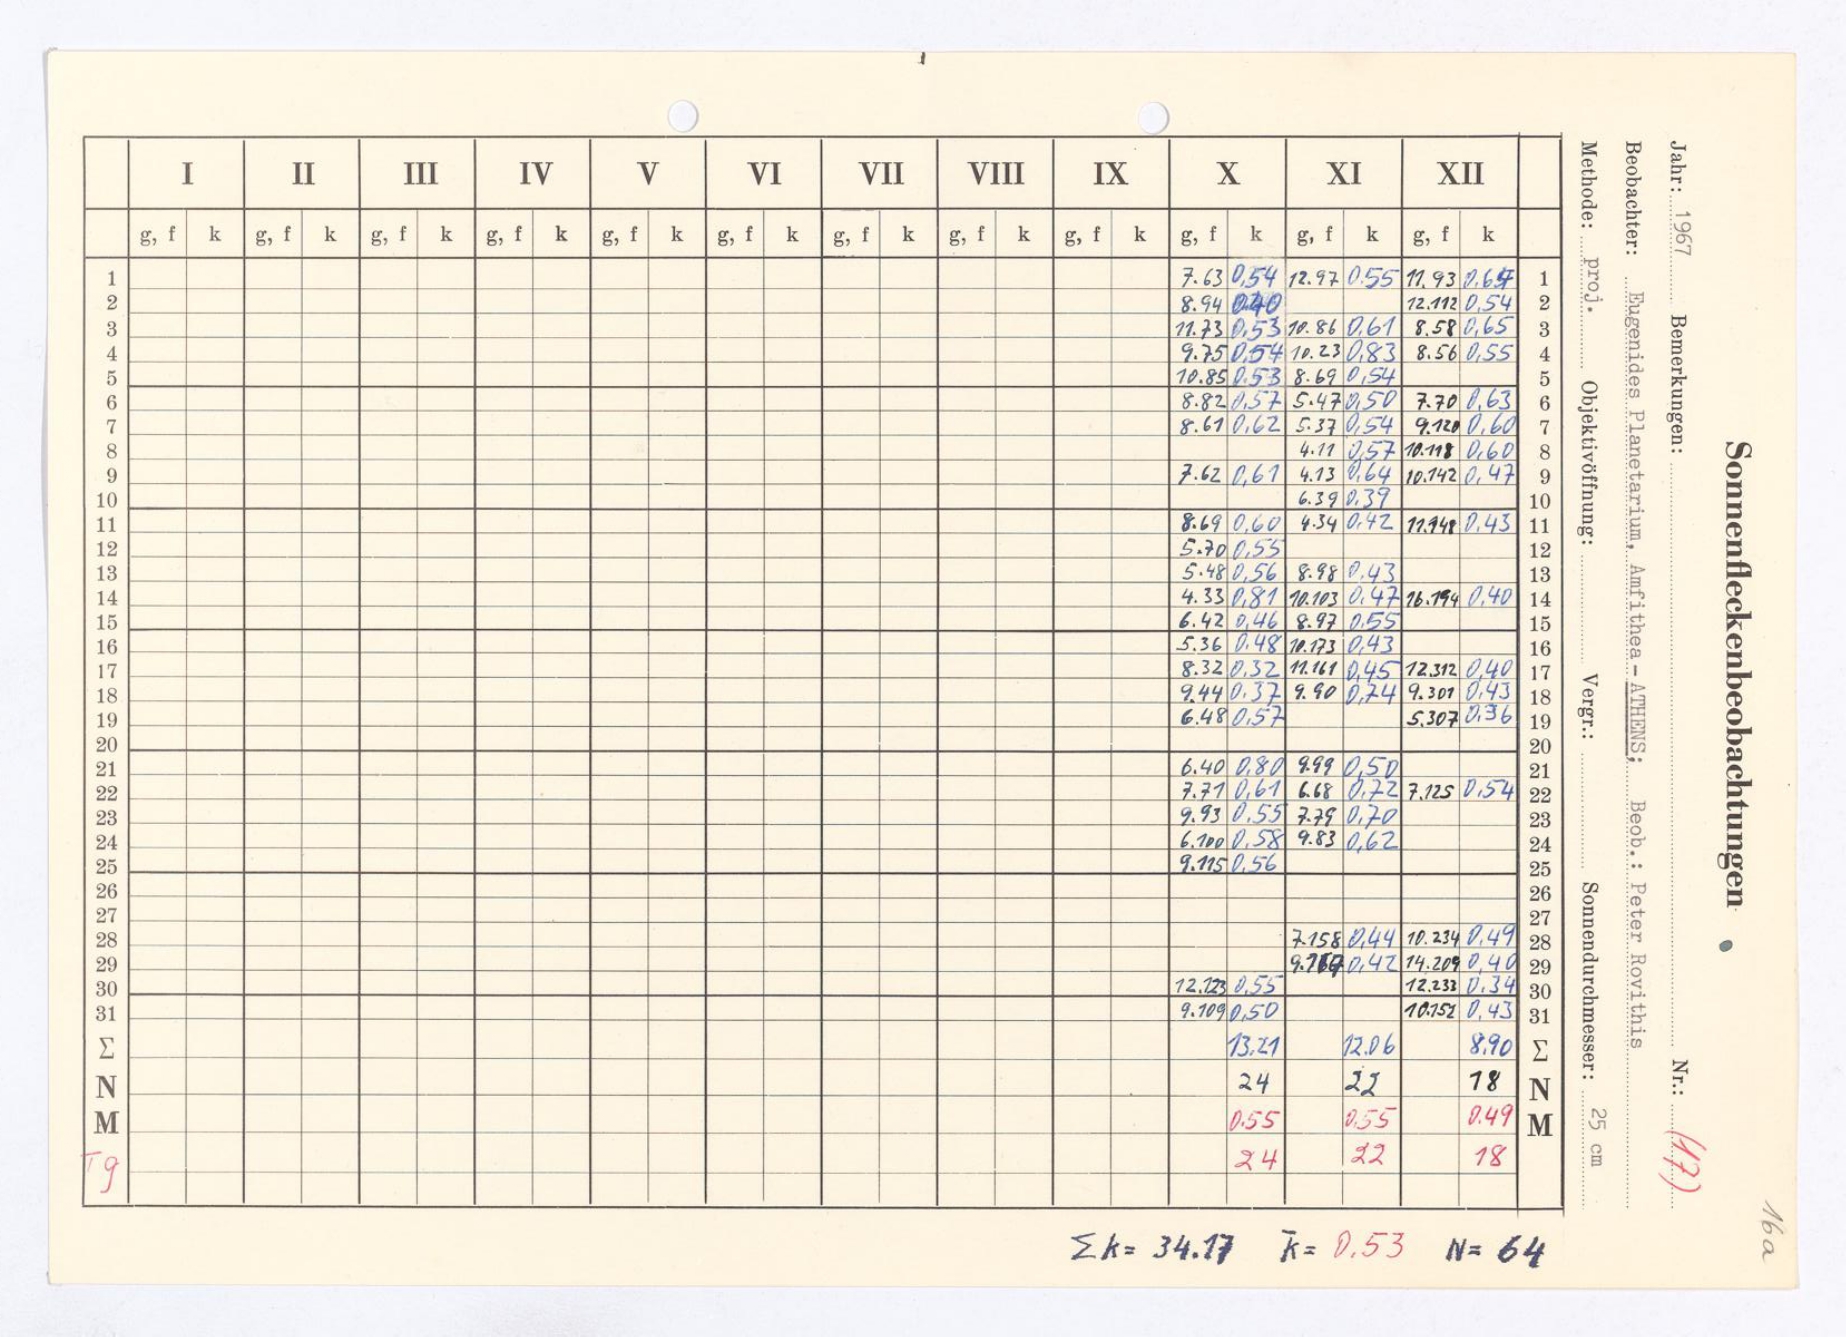 Sonnenfleckenbeobachtungen
Jahr: 1967 Bemerkungen: Nr.: (17)
Beobachter: Eugenides Planetarium, Amfithea-ATHENS; Beob.: Peter Rovithis
Methode: proj. Objektivöffnung: Vergr.: Sonnendurchmesser: 25 cm
16a
I II III IV V VI VII VIII IX X XI XII
g, f k g, f k g, f k g, f k g, f k g, f k g, f k g, f k g, f k g, f k g, f k g, f k
1 7.63 0,54 12.97 0.55 11.93 1
2 8.94 0,40 12.112 0,54 2
3 11.73 0,53 10.86 0,61 8.58 0,65 3
4 9.75 0,54 10.23 0,83 8.56 0,55 4
5 10.85 0.53 8.69 0,54 5
6 8.82 0,57 5.47 0,50 7.70 0,63 6
7 8.61 0,62 5.37 0,54 9.120 0,60 7
8 4.11 0,57 10.118 0,60 8
9 7.62 0,61 4.13 0,64 10.142 0,47 9
10 6.39 0,39 10
11 8.69 0,60 4.34 0,42 11.148 0,43 11
12 5.70 0,55 12
13 5.48 0,56 8.98 0,43 13
14 4.33 0,81 10.103 0,47 16.194 0,40 14
15 6.42 0,46 8.97 0,55 15
16 5.36 0.48 10.173 0,43 16
17 8.32 0,32 11.161 0,45 12.312 0,40 17
18 9.44 0,37 9.90 0,74 9.301 0,43 18
19 6.48 0,57 5.307 0,36 19
20 20
21 6.40 0,80 9.99 0,50 21
22 7.71 0,61 6.68 0,72 7.125 0,54 22
23 9.93 0,55 7.79 0,70 23
24 6.100 0,58 9.83 0,62 24
25 9.115 0,56 25
26 26
27 27
28 7.158 0,44 10.234 0,49 28
29 0,42 14.209 0,40 29
30 12.123 0,55 12.233 0,34 30
31 9.109 0,50 10.152 0,43 31
Σ 13.21 12.06 8.90 Σ
N 24 22 18 N
M 0.55 0.55 0.49 M
Tg 24 22 18
Σk= 34.17 k̄= 0,53 N= 64